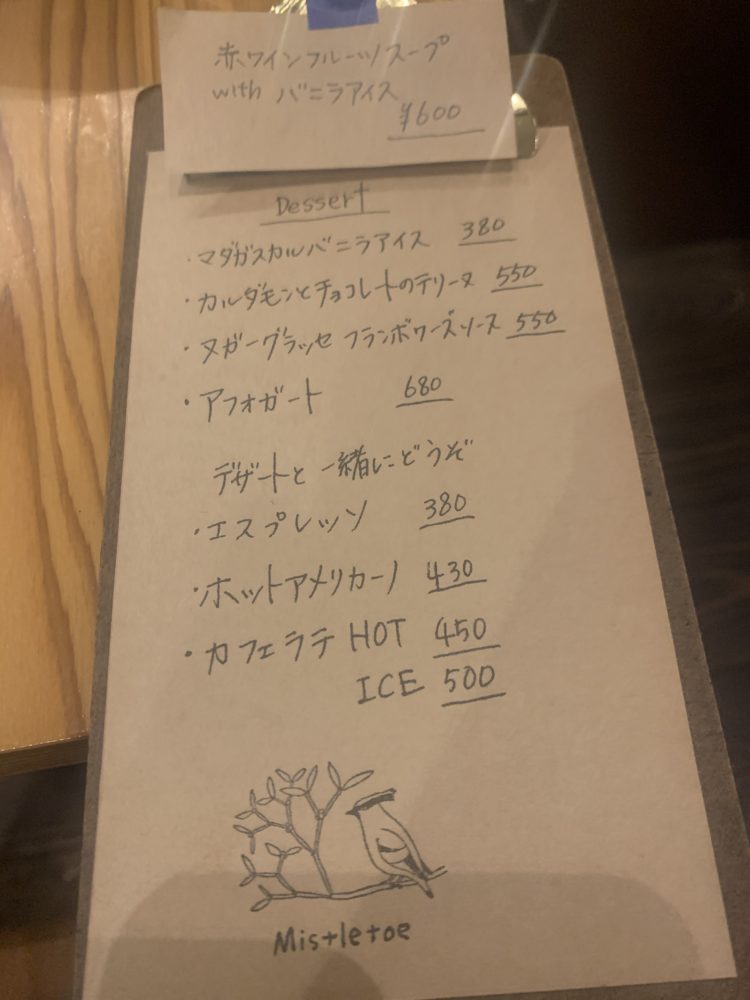 赤ワインフルーツスープ
with バニラアイス
¥600
Dessert
・マダガスカルバニラアイス 380
・カルダモンとチョコレートのテリーヌ 550
・ヌガーグラッセ フランボワーズソース 550
・アフォガート 680
デザートと一緒にどうぞ
・エスプレッソ 380
・ホットアメリカーノ 430
・カフェラテ HOT 450
ICE 500
Mistletoe